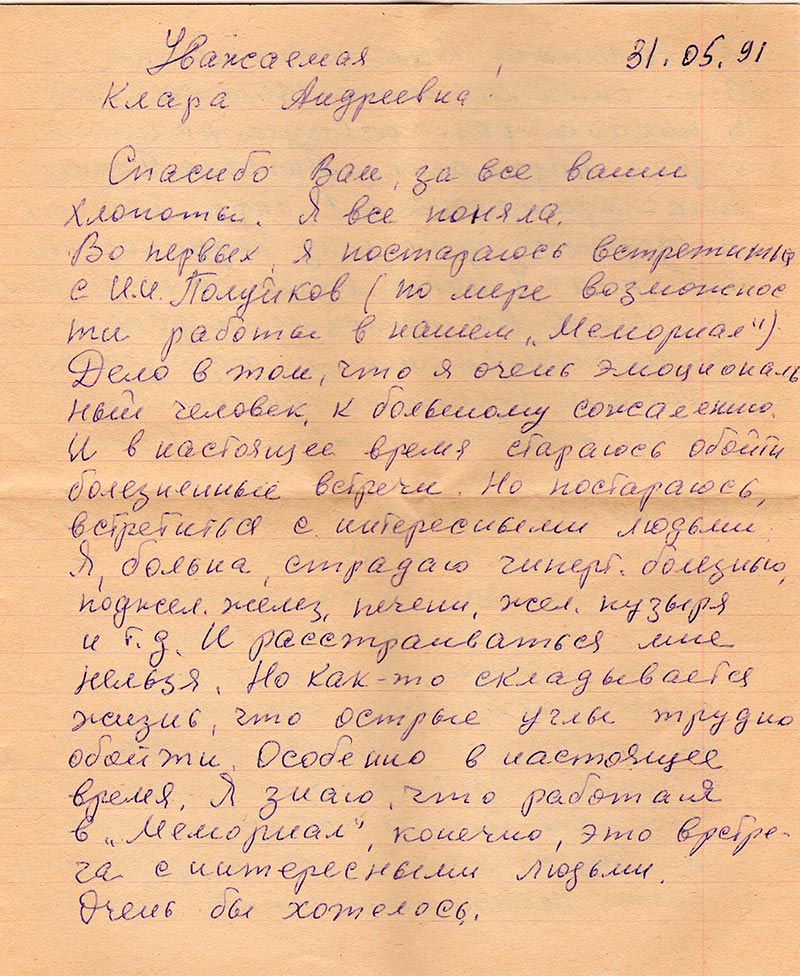 Уважаемая , 31.05.91
Клара Андреевна!
Спасибо Вам, за все ваши
хлопоты. Я все поняла.
Во первых, я постараюсь встретиться
с И.И. Полуйков (по мере возможнос
ти работы в нашем „Мемориал“).
Дело в том, что я очень эмоциональ
ный человек, к большому сожалению.
И в настоящее время стараюсь обойти
болезненные встречи. Но постараюсь,
встретиться с интересными людьми.
Я, больна, страдаю гиперт. болезнью,
поджел. желез, печени, жел. пузыря
и т.д. И расстраиваться мне
нельзя. Но как-то складывается
жизнь, что острые углы трудно
обойти. Особенно в настоящее
время. Я знаю, что работая
в „Мемориал“, конечно, это врстре-
ча с интересными людьми.
Очень бы хотелось.